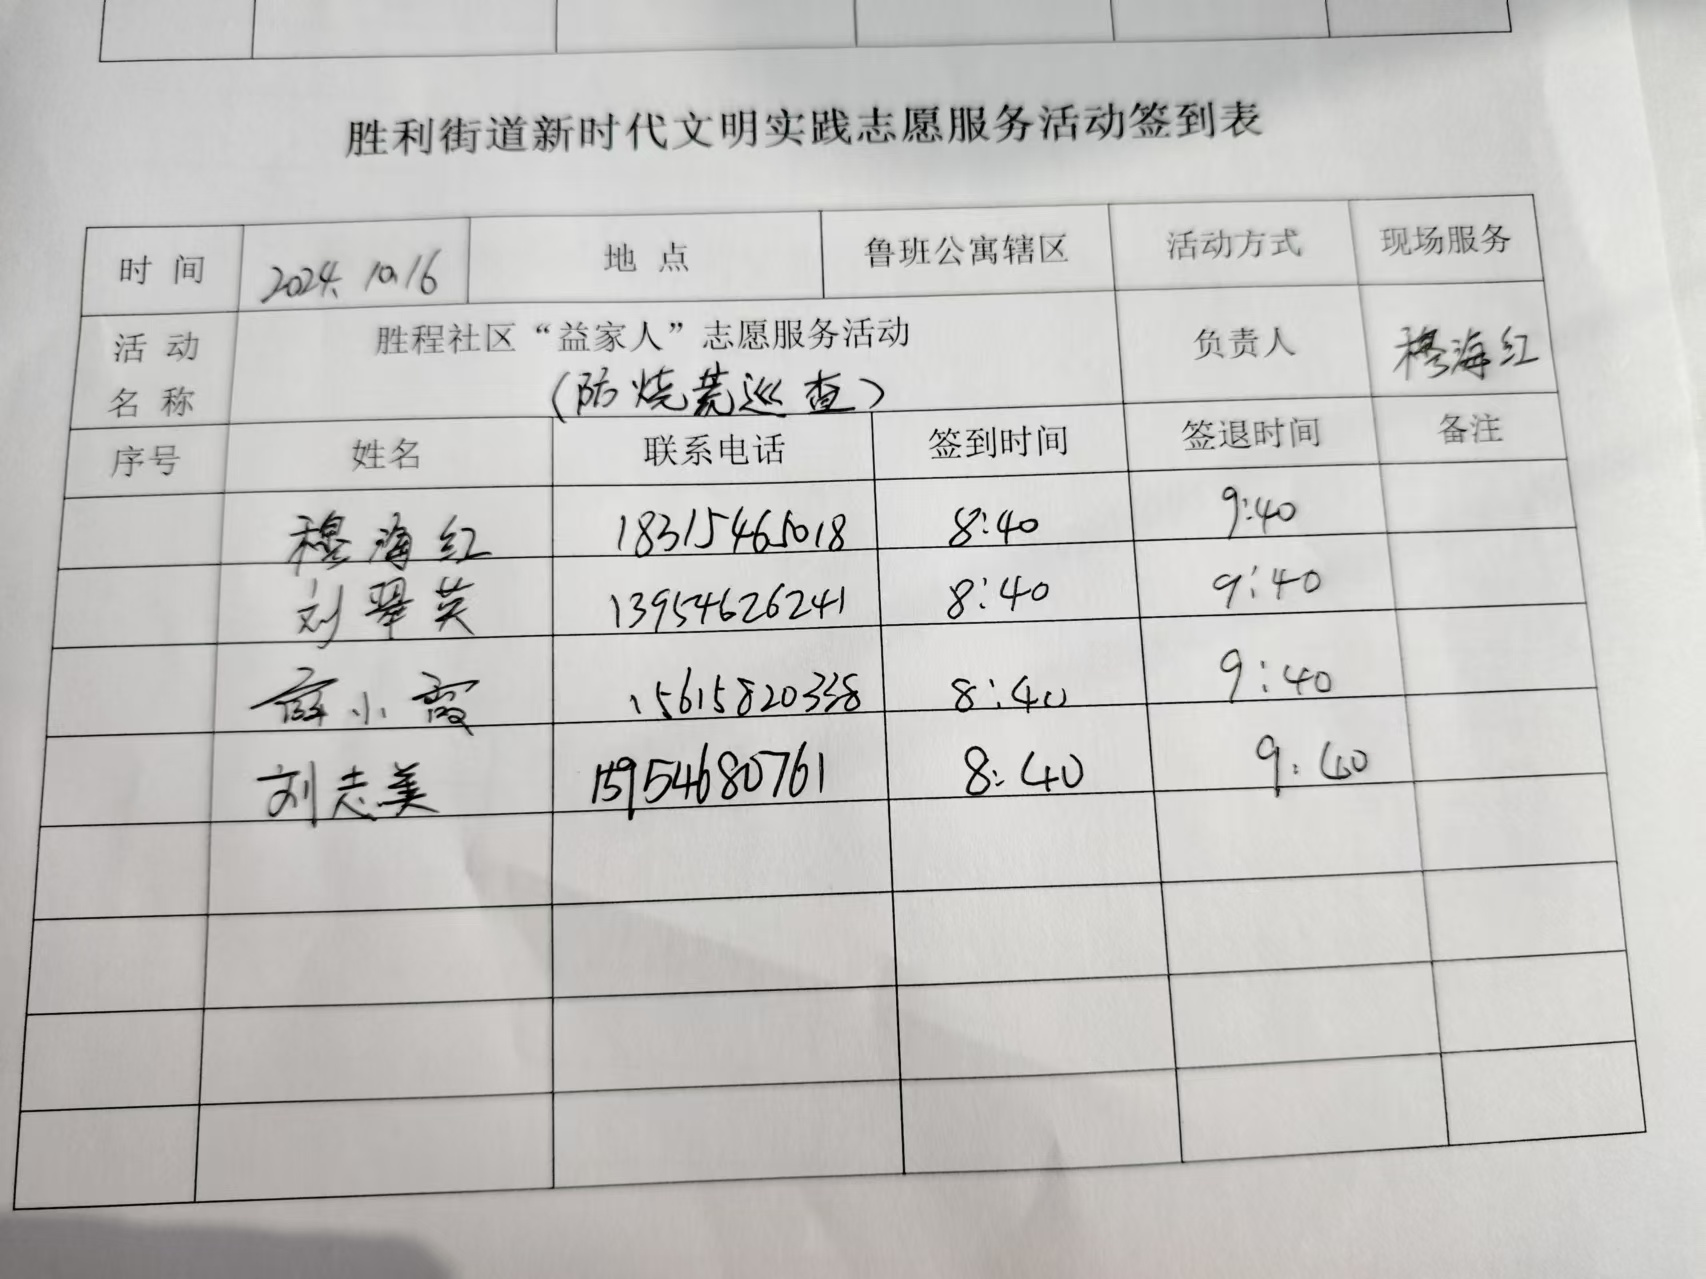 胜利街道新时代文明实践志愿服务活动签到表
时 间 2024.10.16 地 点 鲁班公寓辖区 活动方式 现场服务
活 动 名 称 胜程社区“益家人”志愿服务活动 负责人 穆海红
（防烧荒巡查）
序号 姓名 联系电话 签到时间 签退时间 备注
穆海红 18315465018 8:40 9:40
刘翠英 13954626241 8:40 9:40
薛小霞 15615820338 8:40 9:40
刘志美 15954680761 8:40 9:40